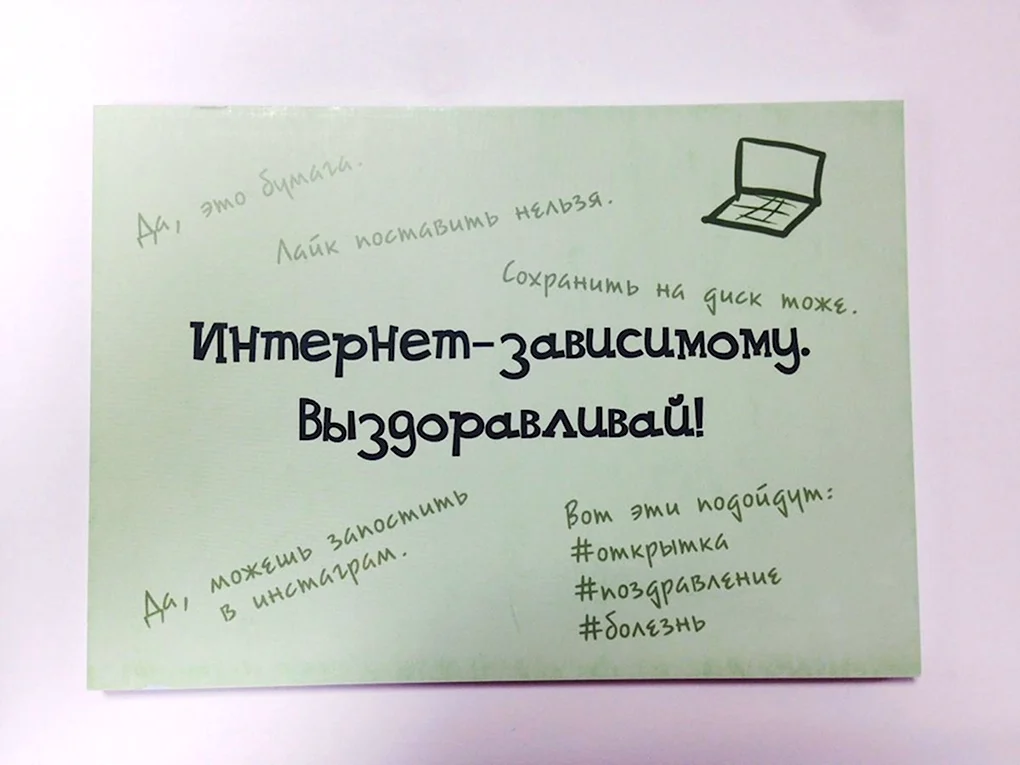 Да, это бумага.
Лайк поставить нельзя.
Сохранить на диск тоже.
Интернет-зависимому.
Выздоравливай!
Да, можешь запостить
в инстаграм.
Вот эти подойдут:
#открытка
#поздравление
#болезнь